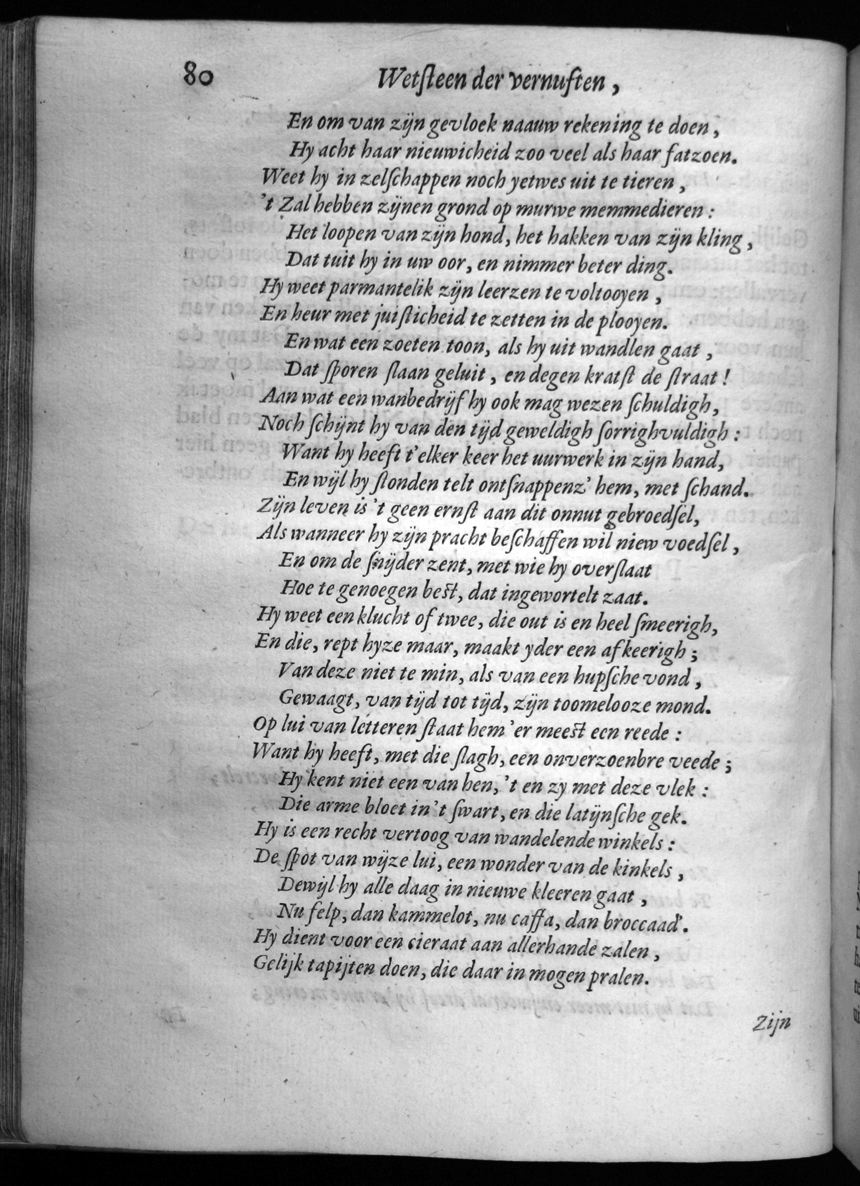 80 Wetſteen der vernuften,
En om van zijn gevloek naauw rekening te doen,
Hy acht haar nieuwicheid zoo veel als haar fatzoen.
Weet hy in zelſchappen noch yetwes uit te tieren,
't Zal hebben zijnen grond op murwe memmedieren:
Het loopen van zijn hond, het hakken van zijn kling,
Dat tuit hy in uw oor, en nimmer beter ding.
Hy weet parmantelik zijn leerzen te voltooyen,
En heur met juiſticheid te zetten in de plooyen.
En wat een zoeten toon, als hy uit wandlen gaat,
Dat ſporen ſlaan geluit, en degen kratſt de ſtraat!
Aan wat een wanbedrijf hy ook mag wezen ſchuldigh,
Noch ſchijnt hy van den tijd geweldigh ſorrighvuldigh:
Want hy heeft t'elker keer het uurwerk in zijn hand,
En wijl hy ſtonden telt ontſnappenz' hem, met ſchand.
Zijn leven is 't geen ernſt aan dit onnut gebroedſel,
Als wanneer hy zijn pracht beſchaffen wil niew voedſel,
En om de ſnijder zent, met wie hy overſlaat
Hoe te genoegen beſt, dat ingewortelt zaat.
Hy weet een klucht of twee, die out is en heel ſmeerigh,
En die, rept hyze maar, maakt yder een afkeerigh;
Van deze niet te min, als van een hupſche vond,
Gewaagt, van tijd tot tijd, zijn toomelooze mond.
Op lui van letteren ſtaat hem 'er meeſt een reede:
Want hy heeft, met die ſlagh, een onverzoenbre veede;
Hy kent niet een van hen, 't en zy met deze vlek:
Die arme bloet in 't ſwart, en die latijnſche gek.
Hy is een recht vertoog van wandelende winkels:
De ſpot van wijze lui, een wonder van de kinkels,
Dewijl hy alle daag in nieuwe kleeren gaat,
Nu felp, dan kammelot, nu caffa, dan broccaad'.
Hy dient voor een cieraat aan allerhande zalen,
Gelijk tapijten doen, die daar in mogen pralen.
Zijn